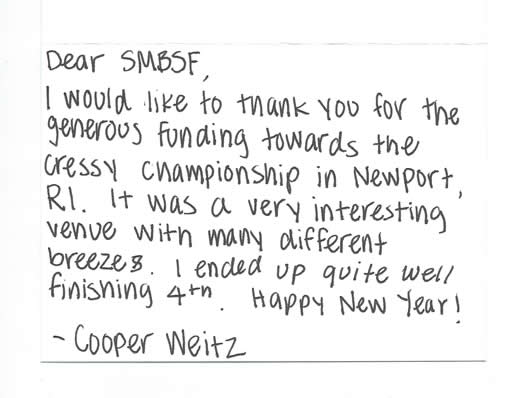 Dear SMBSF,
I would like to thank you for the
generous funding towards the
cressy championship in Newport,
RI. It was a very interesting
venue with many different
breezes. I ended up quite well
finishing 4th. Happy New Year!
- Cooper Weitz